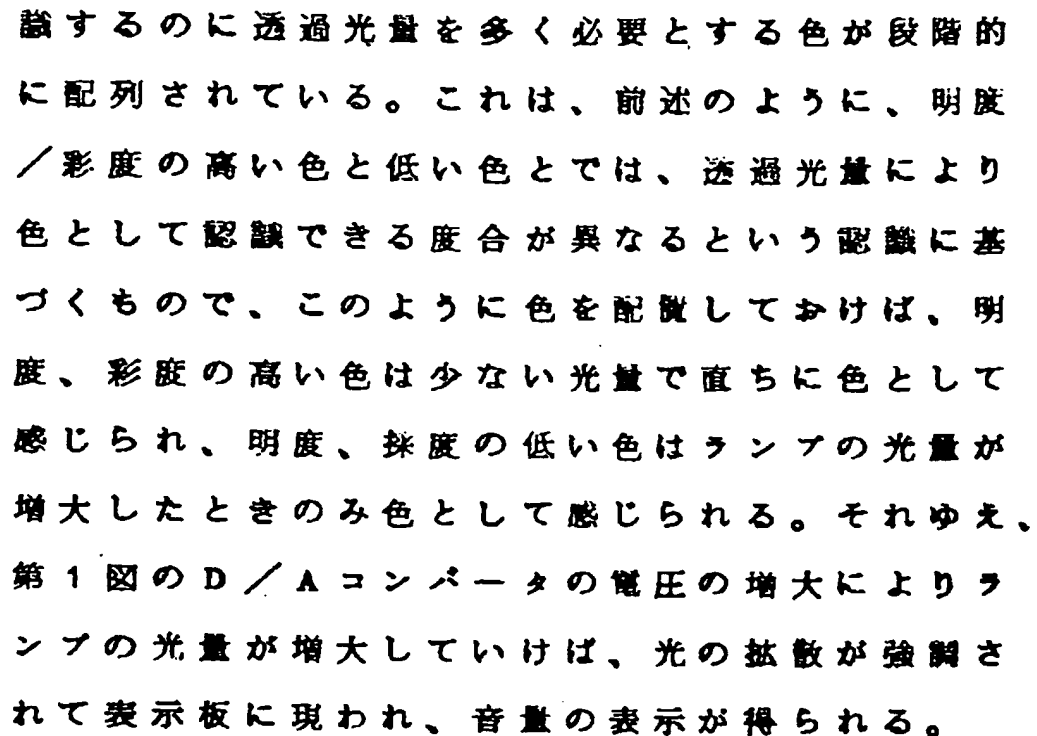 識するのに透過光量を多く必要とする色が段階的
に配列されている。これは、前述のように、明度
／彩度の高い色と低い色とでは、透過光量により
色として認識できる度合が異なるという認識に基
づくもので、このように色を配置しておけば、明
度、彩度の高い色は少ない光量で直ちに色として
感じられ、明度、採度の低い色はランプの光量が
増大したときのみ色として感じられる。それゆえ、
第1図のD／Aコンバータの電圧の増大によりラ
ンプの光量が増大していけば、光の拡散が強調さ
れて表示板に現われ、音量の表示が得られる。